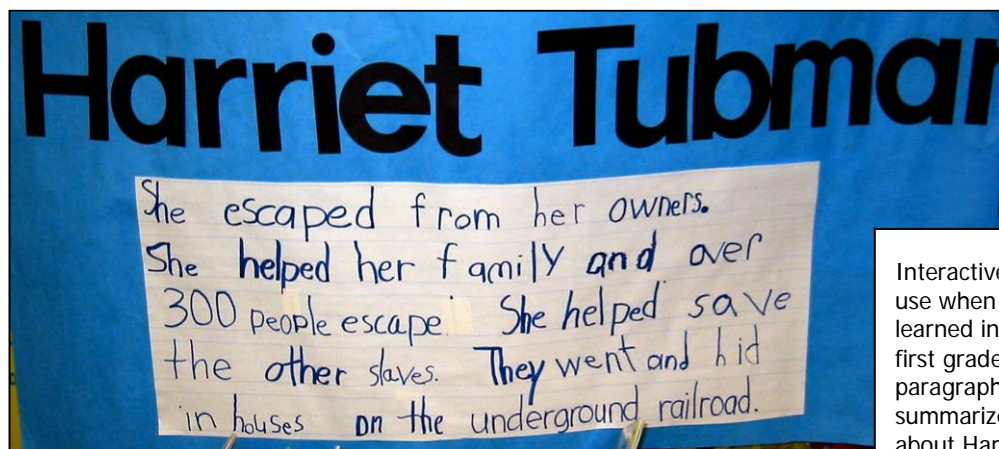 Harriet Tubman
She escaped from her owners.
She helped her family and over
300 people escape. She helped save
the other slaves. They went and hid
in houses on the underground railroad.
Interactive
use when
learned in
first grade
paragraph
summarize
about Har